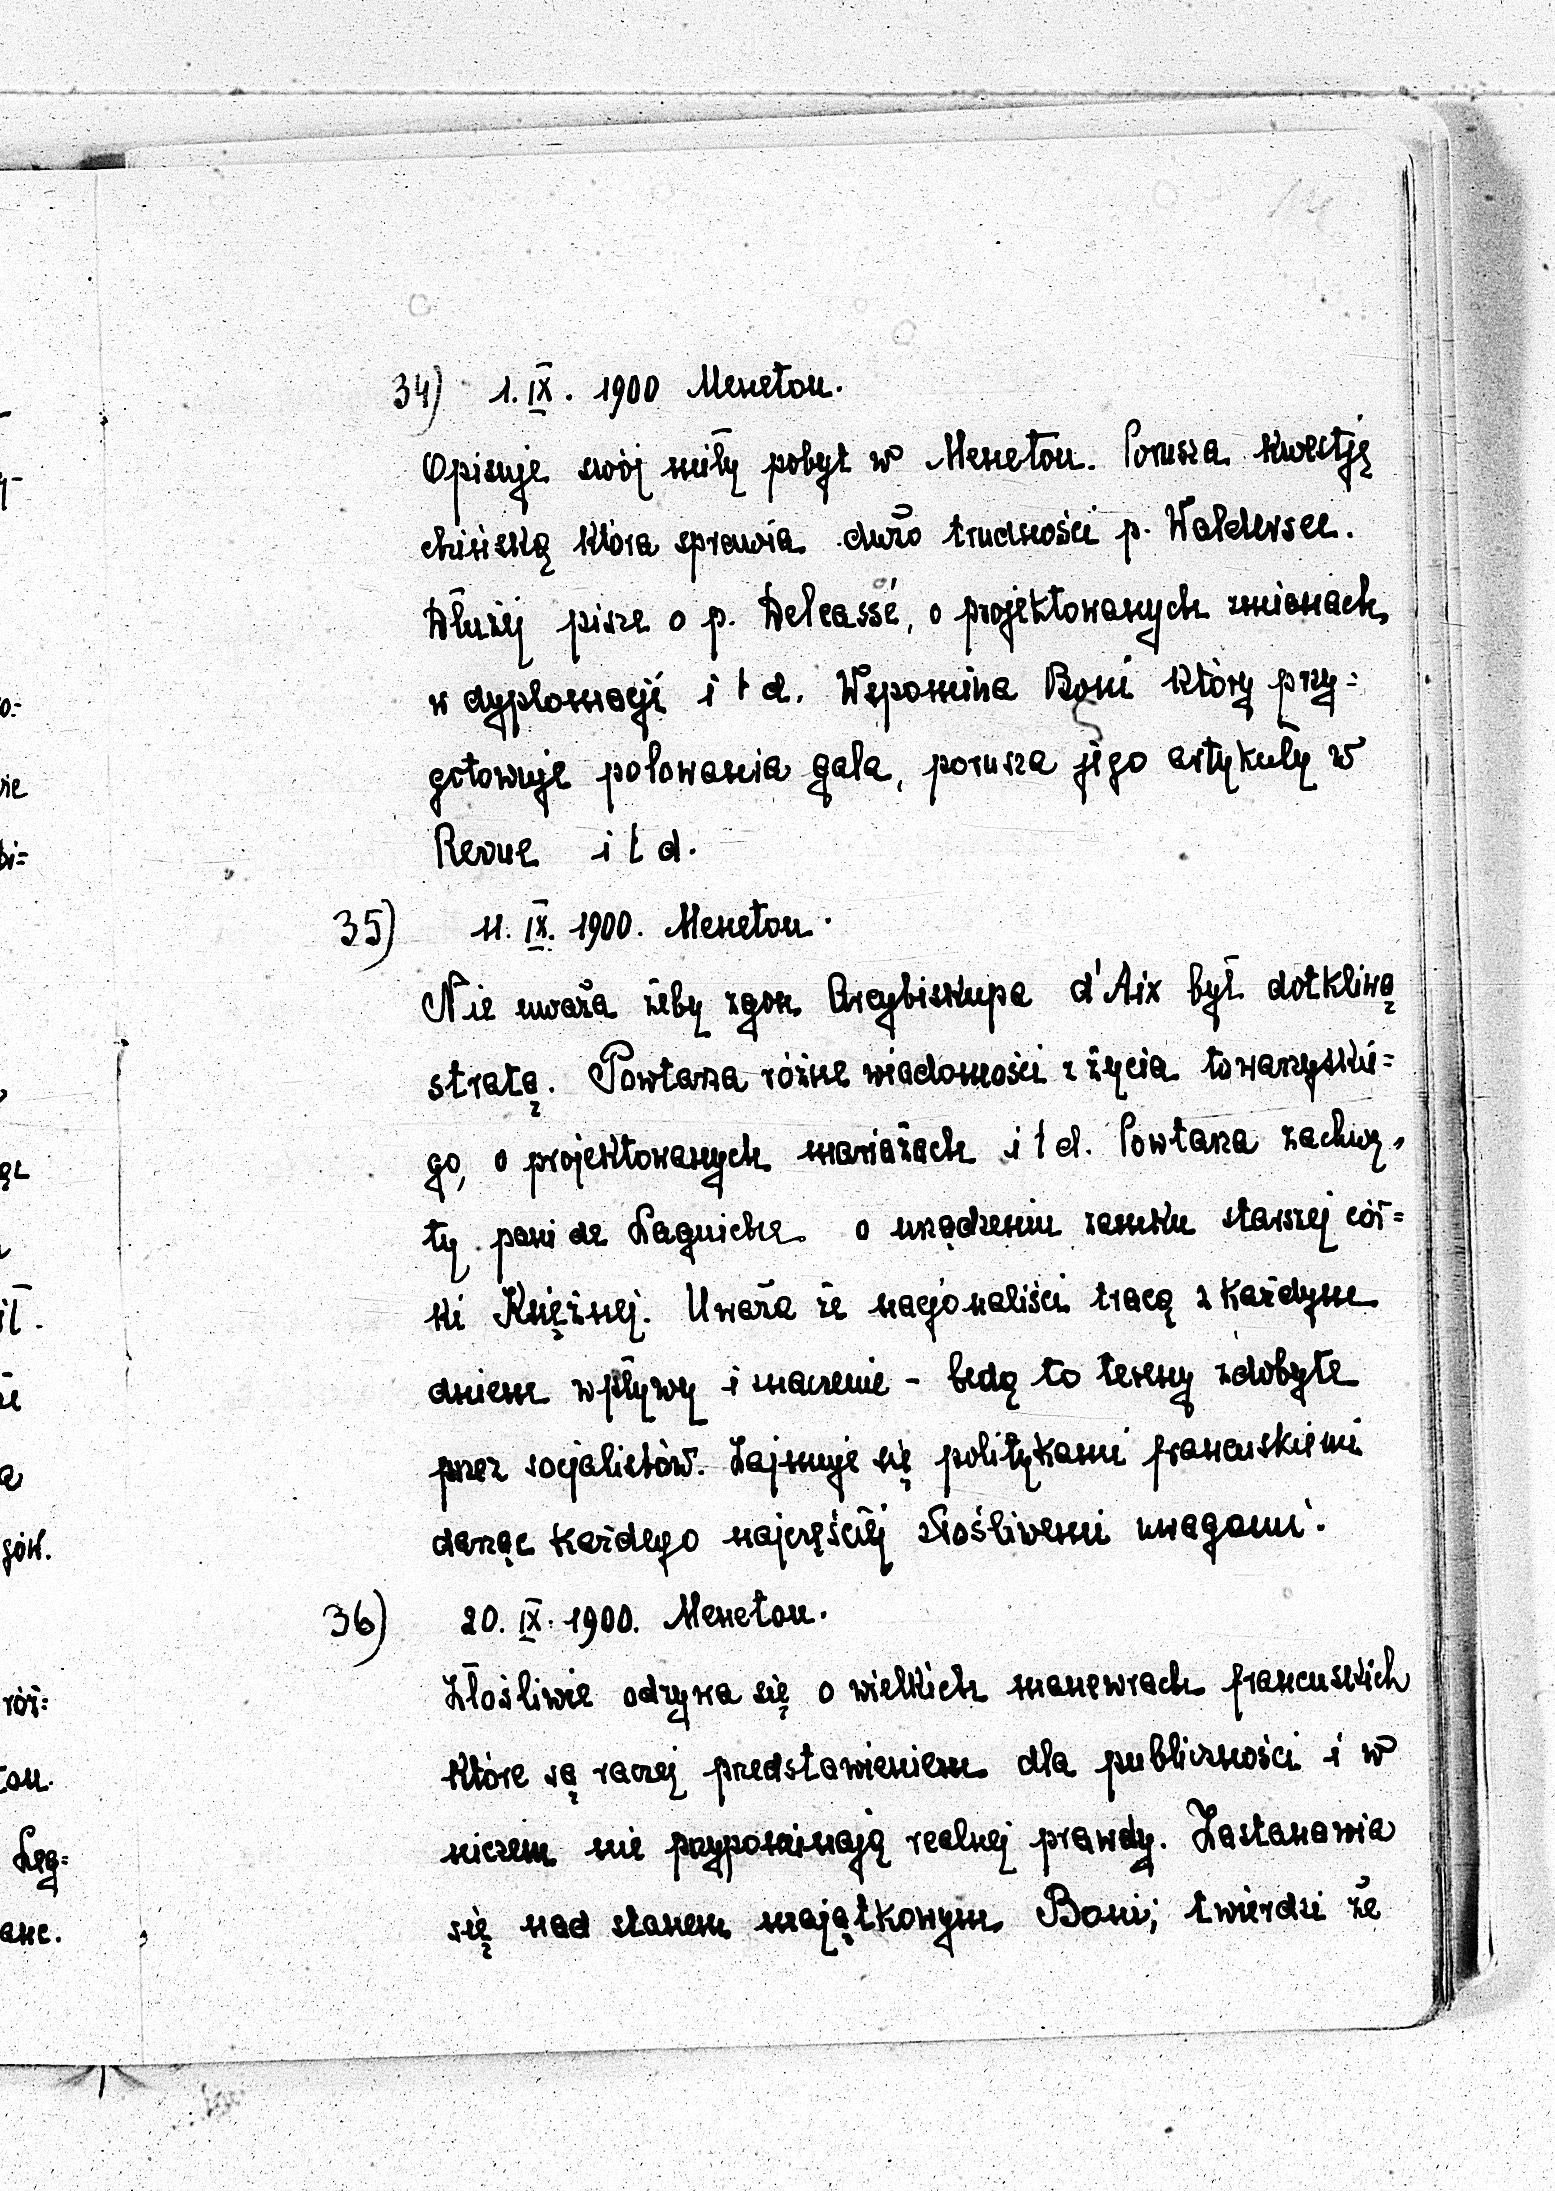 34) 1. IX. 1900 Meneton.
Opisuje swój miły pobyt w Meneton. Porusza kwestję
chińską która sprawia dużo trudności p. Waldersee.
Dłużej pisze o p. Delcassé, o projektowanych zmianach
w dyplomacji i t d. Wspomina Boni który przy=
gotowuje polowania gala, porusza jego artykuły w
Revue i t d.
35) 11. IX. 1900. Meneton.
Nie uważa żeby zgon Arcybiskupa d'Aix był dotkliwą
stratą. Powtarza różne wiadomości z życia towarzyskie=
go, o projektowanych mariażach i t d. Powtarza zachwy=
ty pani de Laguiche o urządzeniu zamku starszej cór=
ki Księżnej. Uważa że nacjonaliści tracą z każdym
dniem wpływy i znaczenie - będą to tereny zdobyte
przez socjalistów. Zajmuje się politykami francuskiemi
darząc każdego najczęściej złośliwemi uwagami.
36) 20. IX. 1900. Meneton.
Złośliwie odzywa się o wielkich manewrach francuskich
które są raczej przedstawieniem dla publiczności i w
niczem nie przypominają realnej prawdy. Zastanawia
się nad stanem majątkowym Boni; twierdzi że